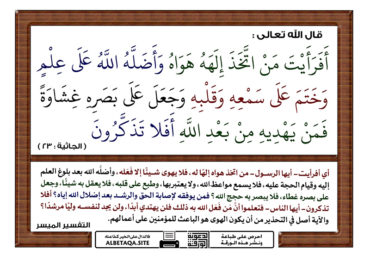 قال الله تعالى :
أَفَرَأَيْتَ مَنْ اتَّخَذَ إِلَهَهُ هَوَاهُ وَأَضَلَّهُ اللَّهُ عَلَى عِلْمٍ
وَخَتَمَ عَلَى سَمْعِهِ وَقَلْبِهِ وَجَعَلَ عَلَى بَصَرِهِ غِشَاوَةً
فَمَنْ يَهْدِيهِ مِنْ بَعْدِ اللَّهِ أَفَلا تَذَكَّرُونَ
( الجاثية : ٢٣ )
أي أفرأيت - أيها الرسول - من اتخذ هواه إلهًا له ، فلا يهوى شيئًا إلا فعَله ، وأضلَّه الله بعد بلوغ العلم
إليه وقيام الحجة عليه ، فلا يسمع مواعظ الله ، ولا يعتبر بها ، وطبع على قلبه ، فلا يعقل به شيئًا ، وجعل
على بصره غطاء ، فلا يبصر به حجج الله ؟ فمن يوفقه لإصابة الحق والرشد بعد إضلال الله إياه ؟ أفلا
تذكرون - أيها الناس - فتعلموا أنَّ من فعل الله به ذلك فلن يهتدي أبدًا ، ولن يجد لنفسه وليًا مرشدًا ؟
والآية أصل في التحذير من أن يكون الهوى هو الباعث للمؤمنين على أعمالهم.
التفسير الميسر
احرص على طباعة
ونشر هذه الورقة
الدال على الخير كفاعله
ALBETAQA.SITE